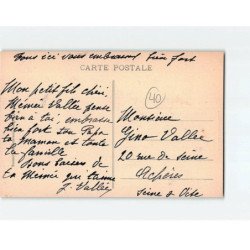 Tous ici vous embrassent bien fort
CARTE POSTALE
Mon petit fils chéri,
Mémée Vallée pense
bien à toi, embrasse
bien fort ton Papa
ta maman et toute
ta famille.
Bons baisers de
ta Mémée qui t'aime
J. Vallée
40
Monsieur
Gino Vallée
20 rue de Seine
Seine & Oise